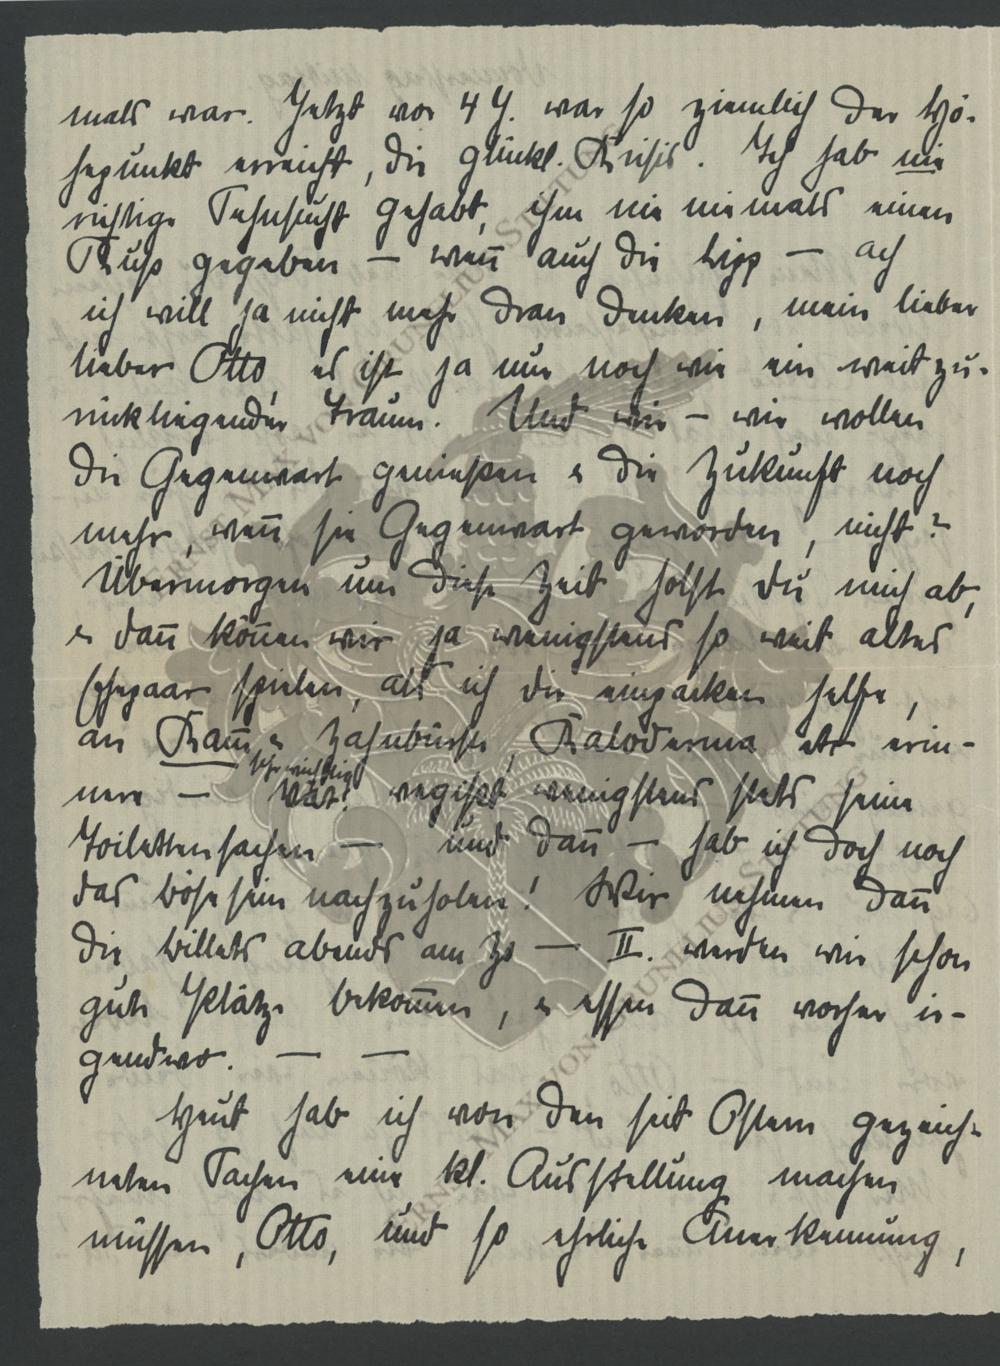 mals war. Jetzt vor 4 J. war so ziemlich der Hö-
hepunkt erreicht, die glückl. Krisis. Ich hab nie
richtige Sehnsucht gehabt, ihm nie niemals einen
Kuss gegeben — wen̄ auch die Lipp — ach
ich will ja nicht mehr dran denken, mein lieber
lieber Otto, es ist ja nur noch wie ein weit zu-
rückliegender Traum. Und wir — wir wollen
die Gegenwart genießen & die Zukunft noch
mehr, wen̄ sie Gegenwart geworden, nicht?
Übermorgen um diese Zeit holst du mich ab,
& dan̄ kön̄en wir ja wenigstens so weit altes
Ehepaar spielen, als ich dir einpacken helfe,
an Kam̄ & Zahnbürste, Kaloderma etc erin-
sehr wichtig
nere — Vat! vergißt wenigstens stets seine
Toilettensachen — und dan̄ — hab ich doch noch
das bösesein nachzuholen! Wir nehmen dan̄
die Billets abends am — II. werden wir schon
gute Plätze bekom̄en, & essen dan̄ vorher ir-
gendwo. — —
Heut hab ich von den seit Ostern gezeich-
neten Sachen eine kl. Ausstellung machen
müssen, Otto, und so ehrliche Anerkennung,